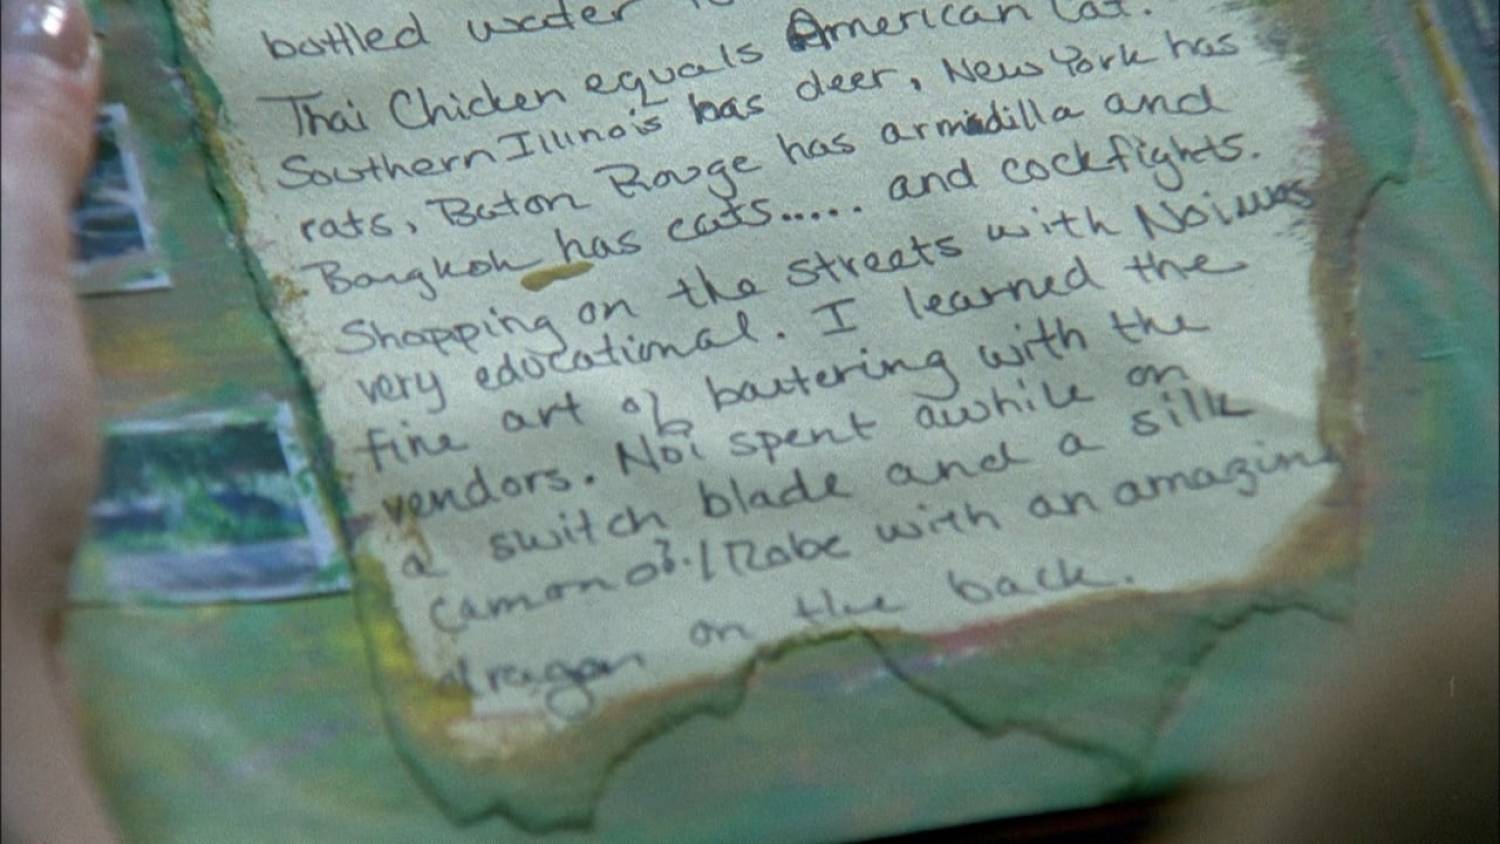 bottled water
Thai Chicken equals American Cat.
Southern Illinois has deer, New York has
rats, Baton Rouge has armidilla and
Bangkok has cats..... and cockfights.
Shopping on the streets with Noi was
very educational. I learned the
fine art of bautering with the
vendors. Noi spent awhile on
a switch blade and a silk
camono?./Robe with an amazing
dragon on the back.